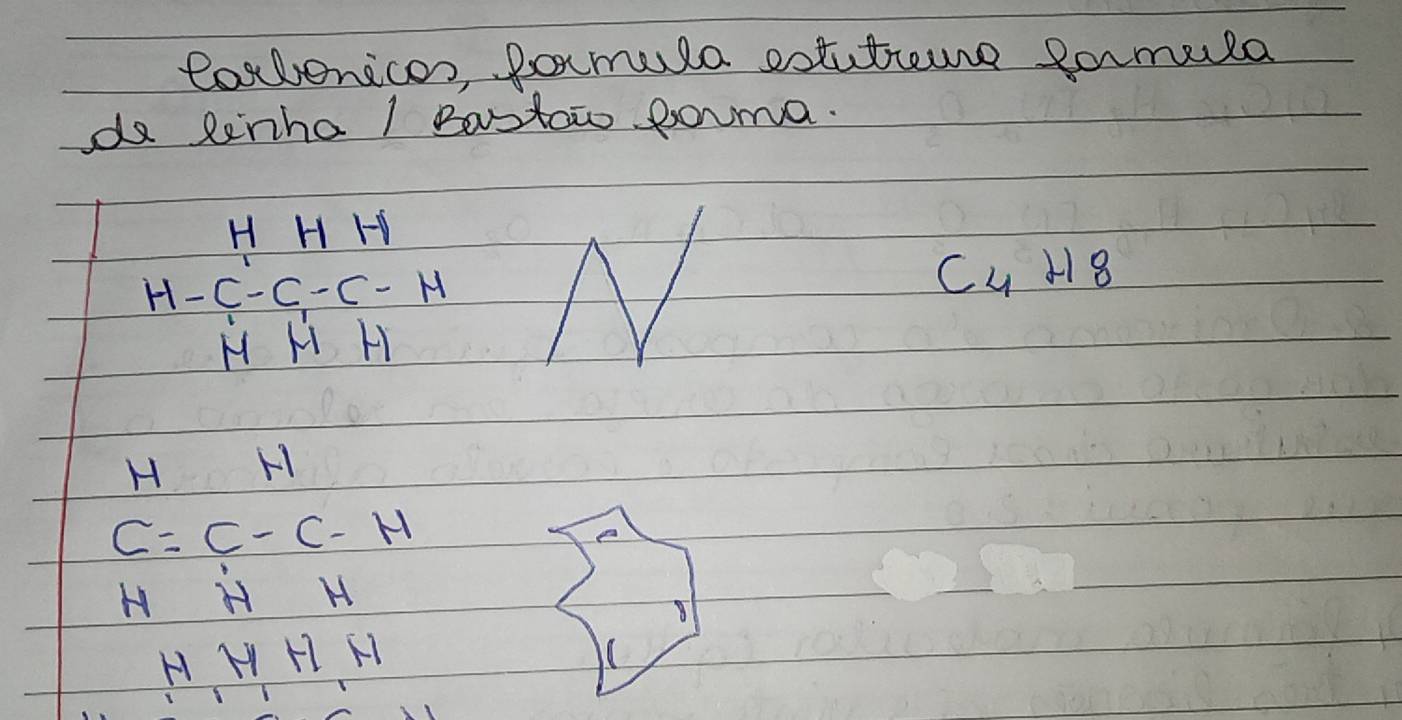 Carbonicos, formula estutreura formula
de linha / Bastão forma.
H H H
H-C-C-C-H
H H H
C4 H8
H H
C=C-C-H
H H H
H H H H